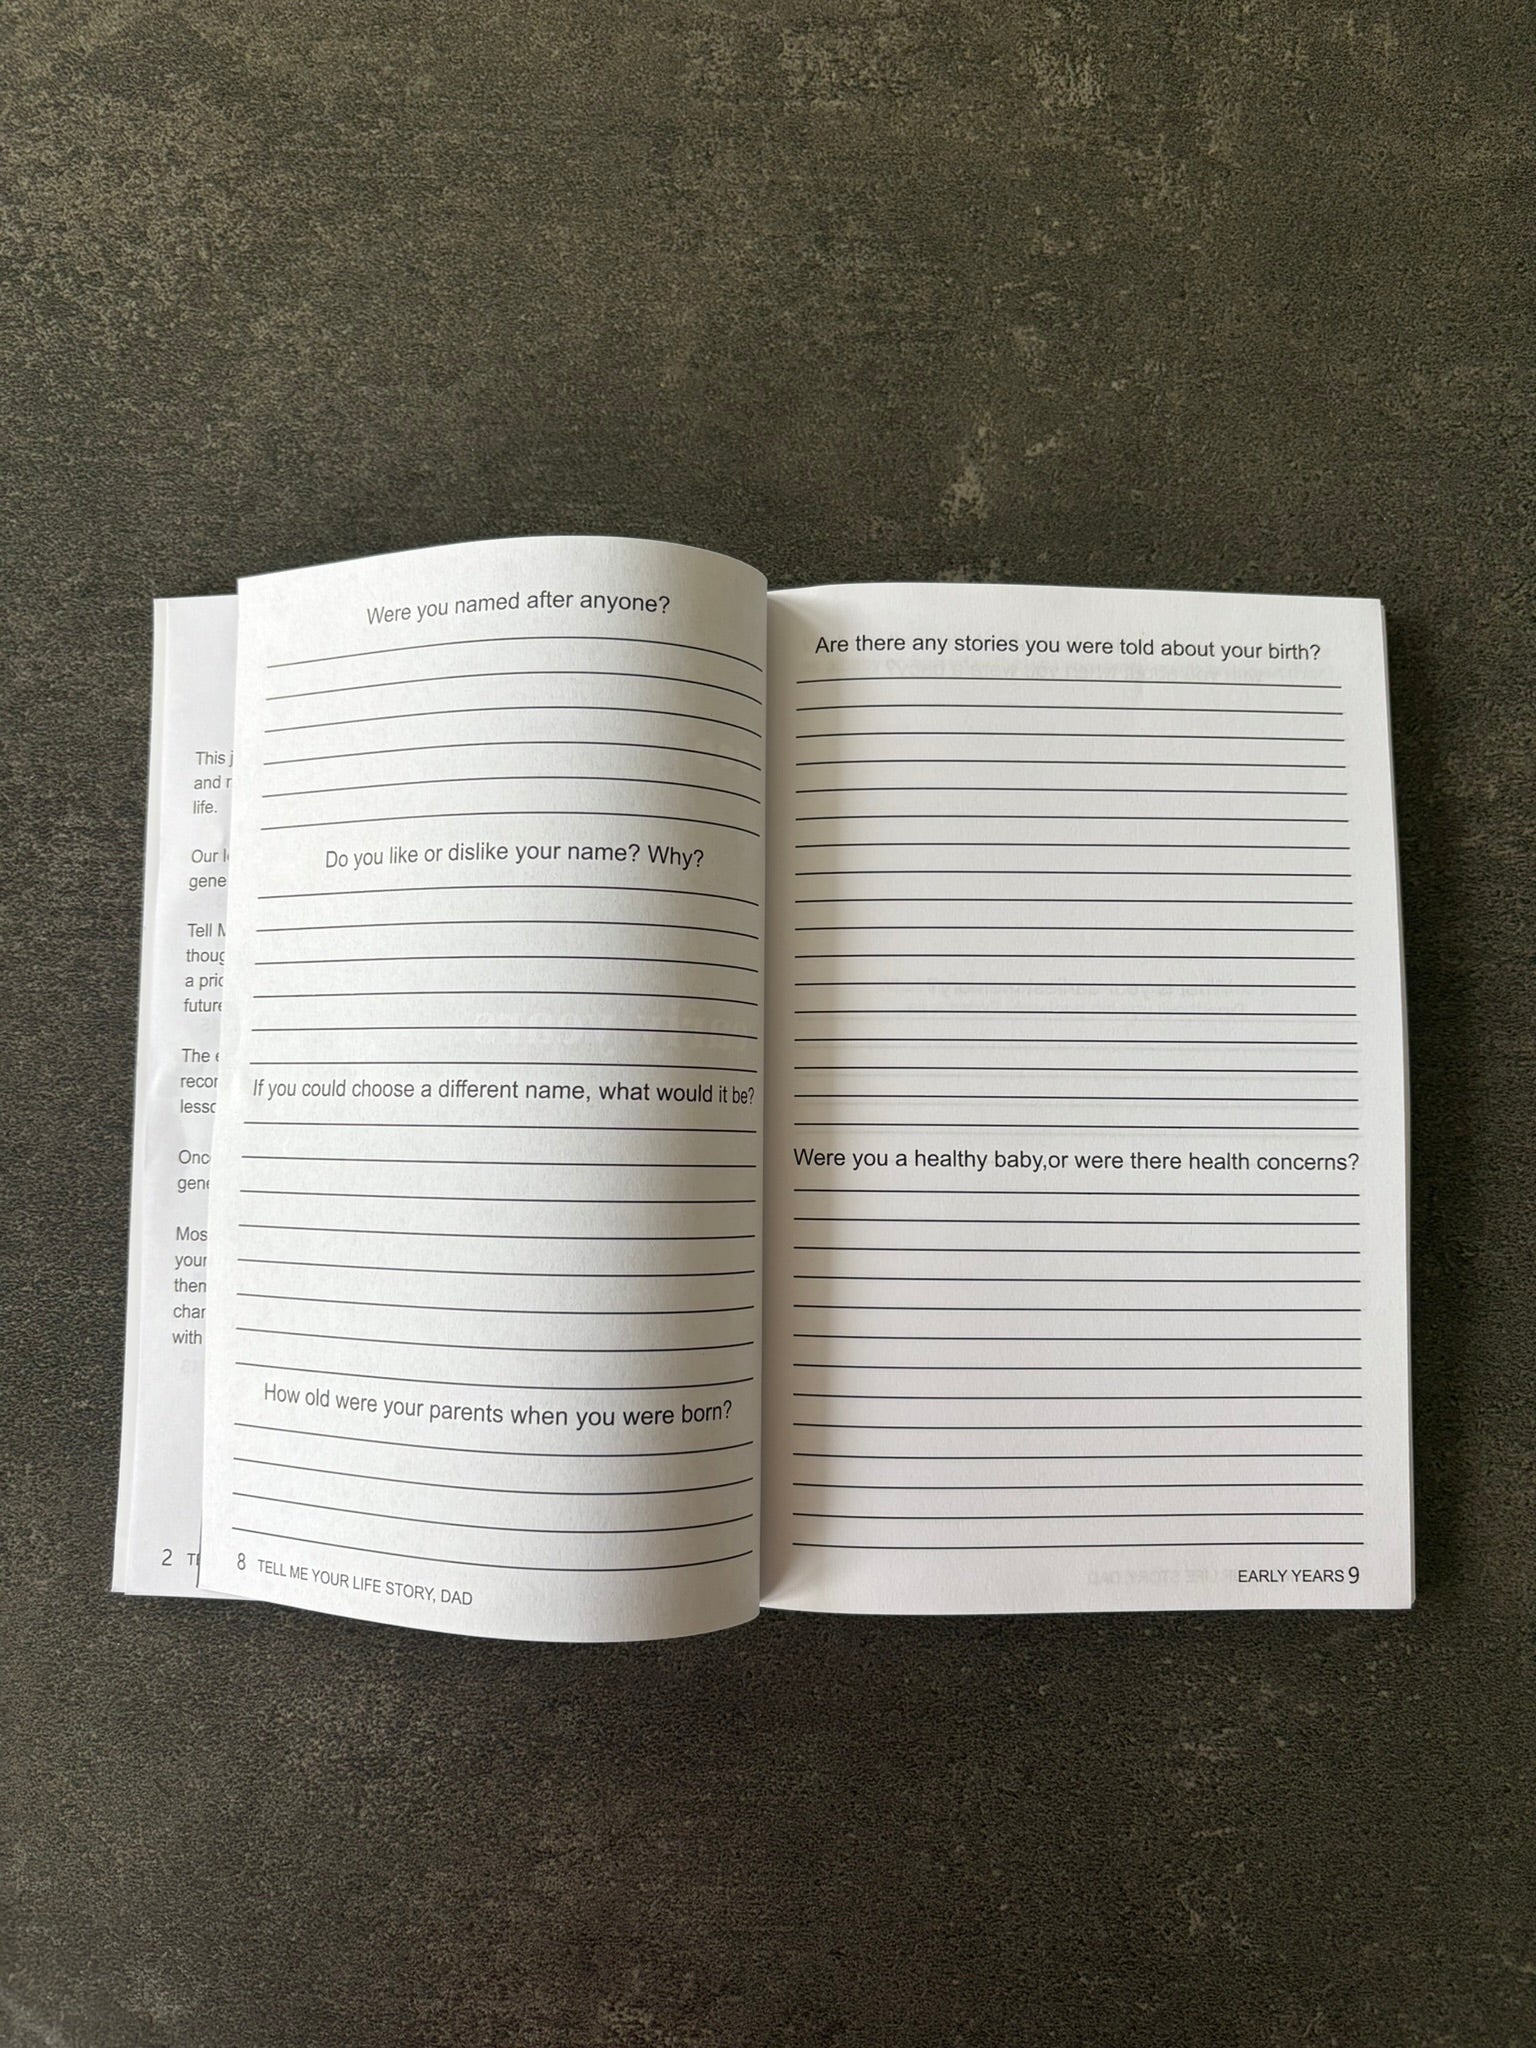 This
and
life.
Our
Tell
a
future
The
Once
Most
your
with
2
Were you named after anyone?
Do you like or dislike your name? Why?
If you could choose a different name, what would it be?
How old were your parents when you were born?
8 TELL ME YOUR LIFE STORY, DAD
Are there any stories you were told about your birth?
Were you a healthy baby,or were there health concerns?
EARLY YEARS 9